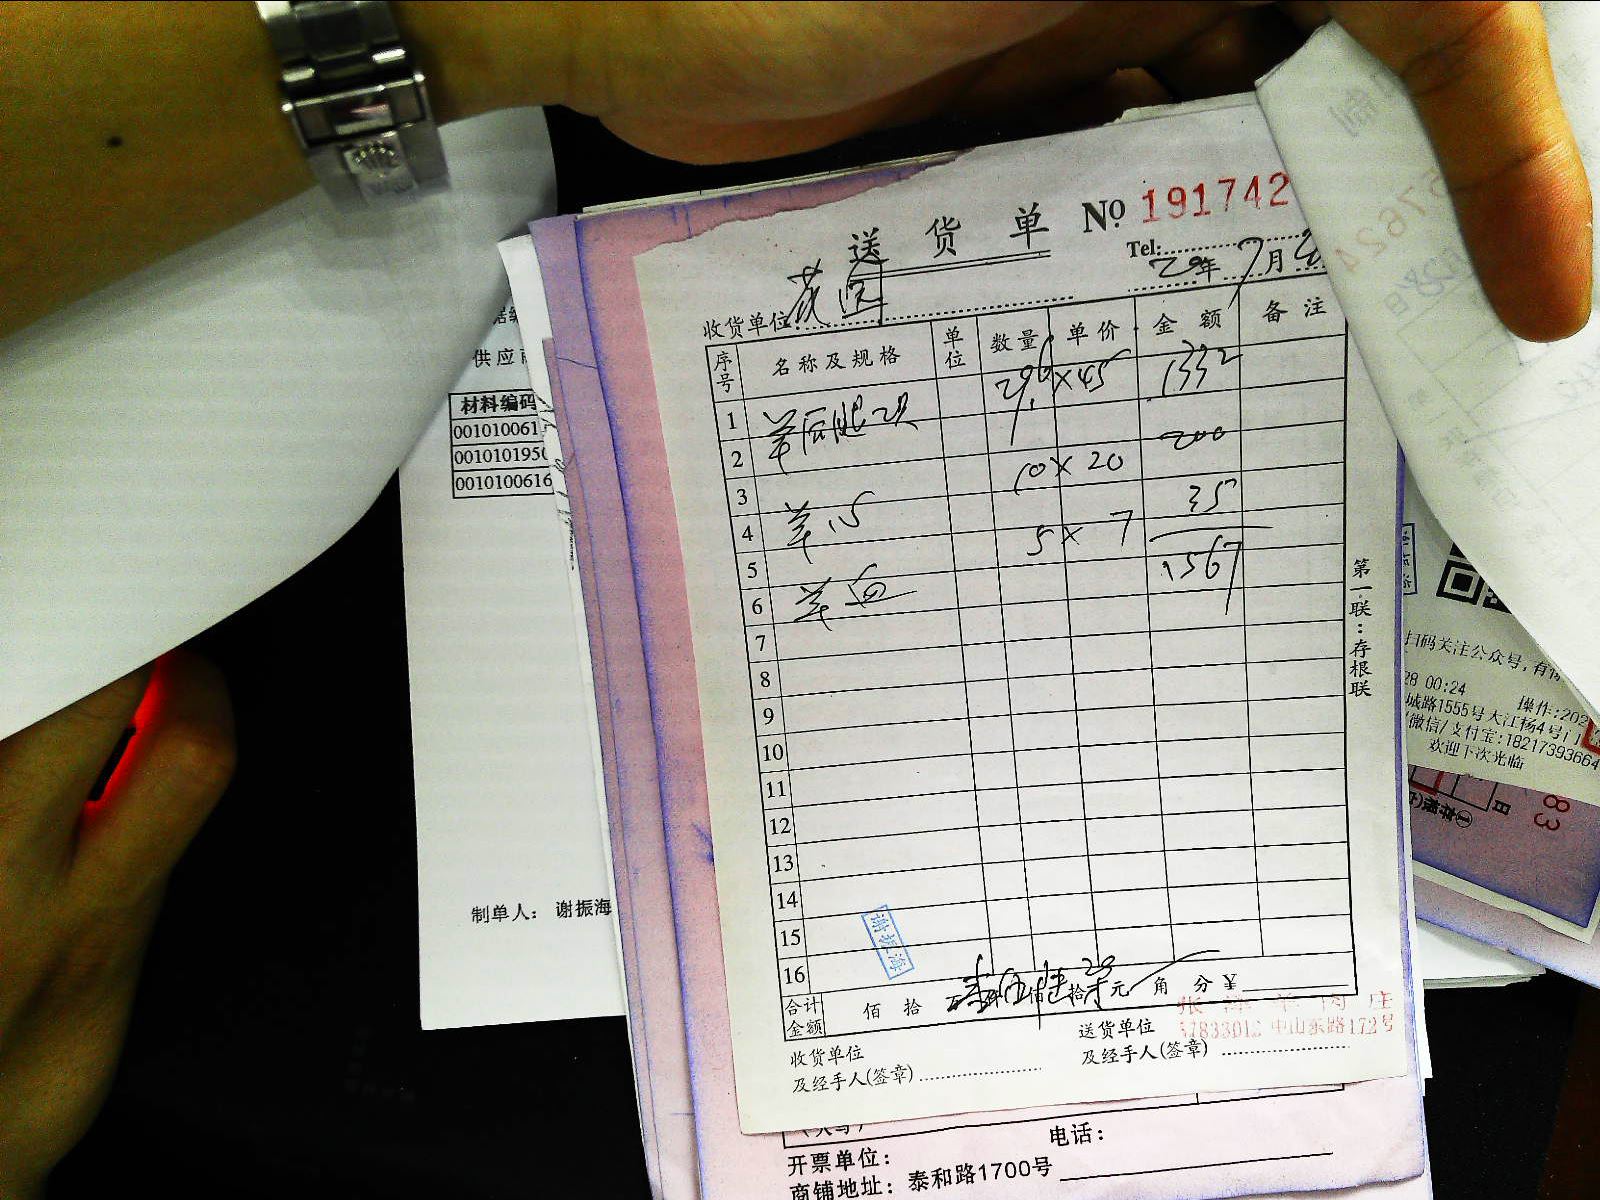 送货单 № 191742
Tel:
20年 7月
收货单位 花园
序号 名称及规格 单位 数量 单价 金额 备注
1 羊后腿块 29.6 × 45 1332
2 10 × 20 200
3 35
4 羊心 5 × 7
5 1567
6 羊血
7
8
9
10
11
12
13
14
15
16
谢振海
合计金额 佰 拾 万 仟 伍 佰 拾 柒 元 角 分 ¥
张泽羊肉庄
57833012 中山东路172号
收货单位及经手人(签章)
送货单位及经手人(签章)
第一联：存根联
供应商
材料编码
001010061
001010195
0010100616
制单人： 谢振海
扫码关注公众号,有
28 00:24 操作:202
城路1555号大江杨4号门
/微信/支付宝:18217393664
欢迎下次光临
83
日
电话：
开票单位：
商铺地址： 泰和路1700号